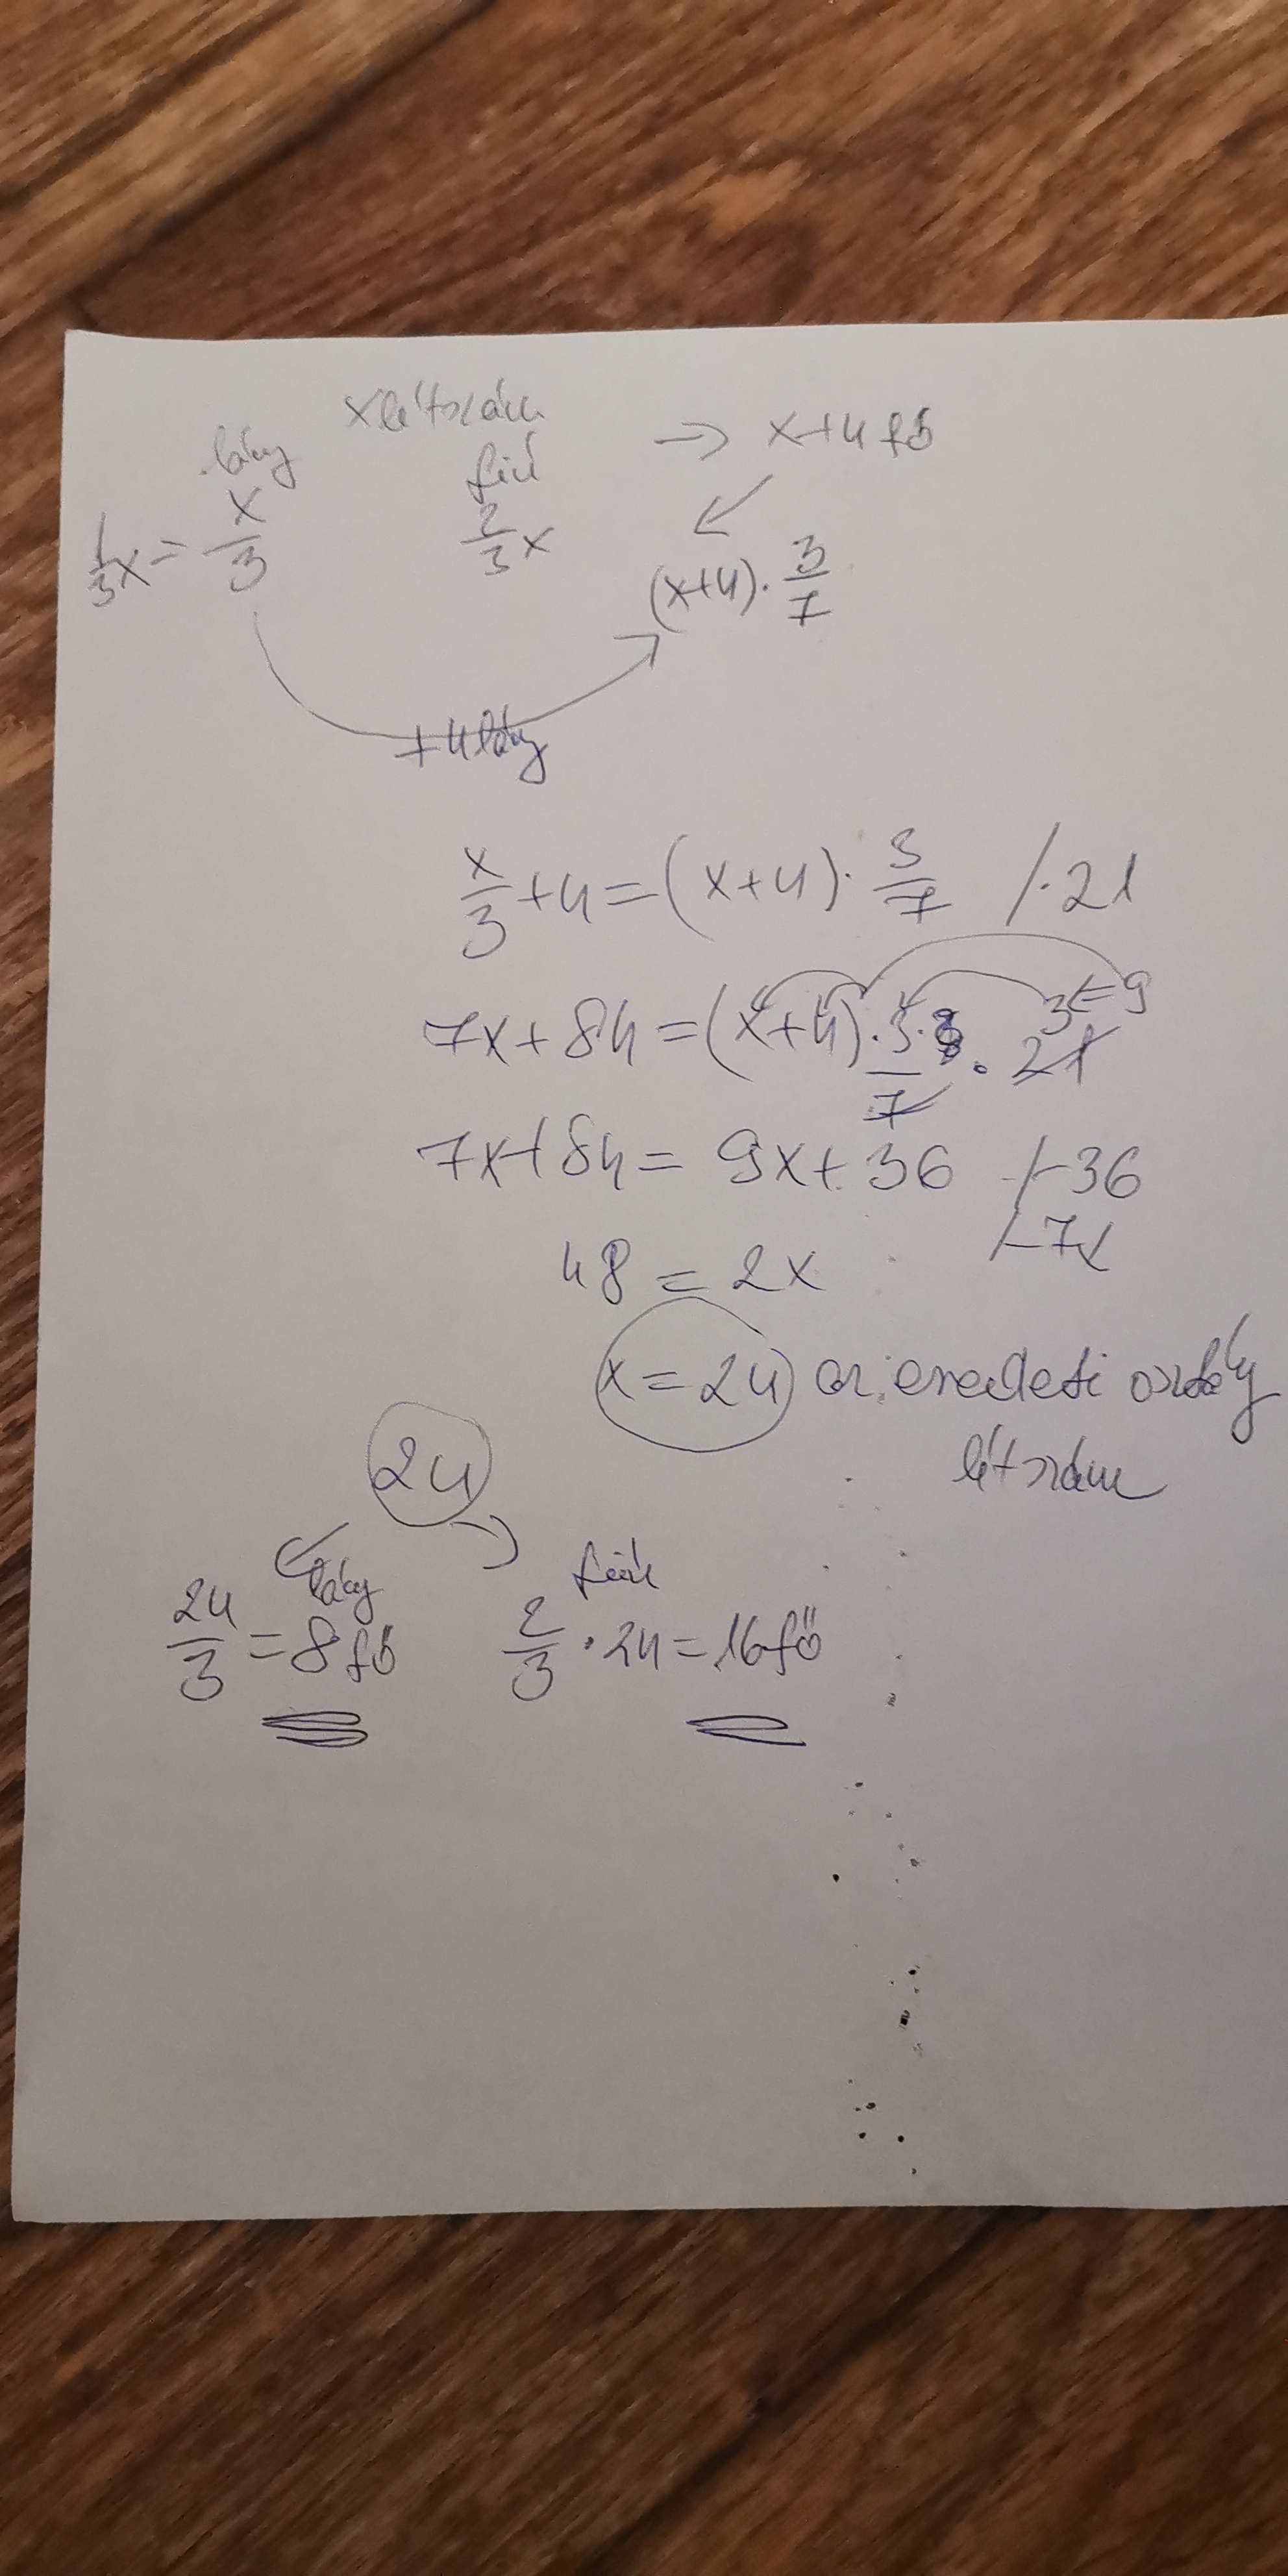 x létszám
lány
fiú
→ x+4 fő
1/3x = x/3
2/3x
(x+4)·3/7
+4 lány
x/3+4=(x+4)·3/7 /·21
7x+84=(x+4)·3·3/7·21 3=9
7x+84=9x+36 /-36
/-7x
48=2x
x=24 az eredeti osztály
létszám
24
lány
fiúk
24/3=8 fő
2/3·24=16 fő